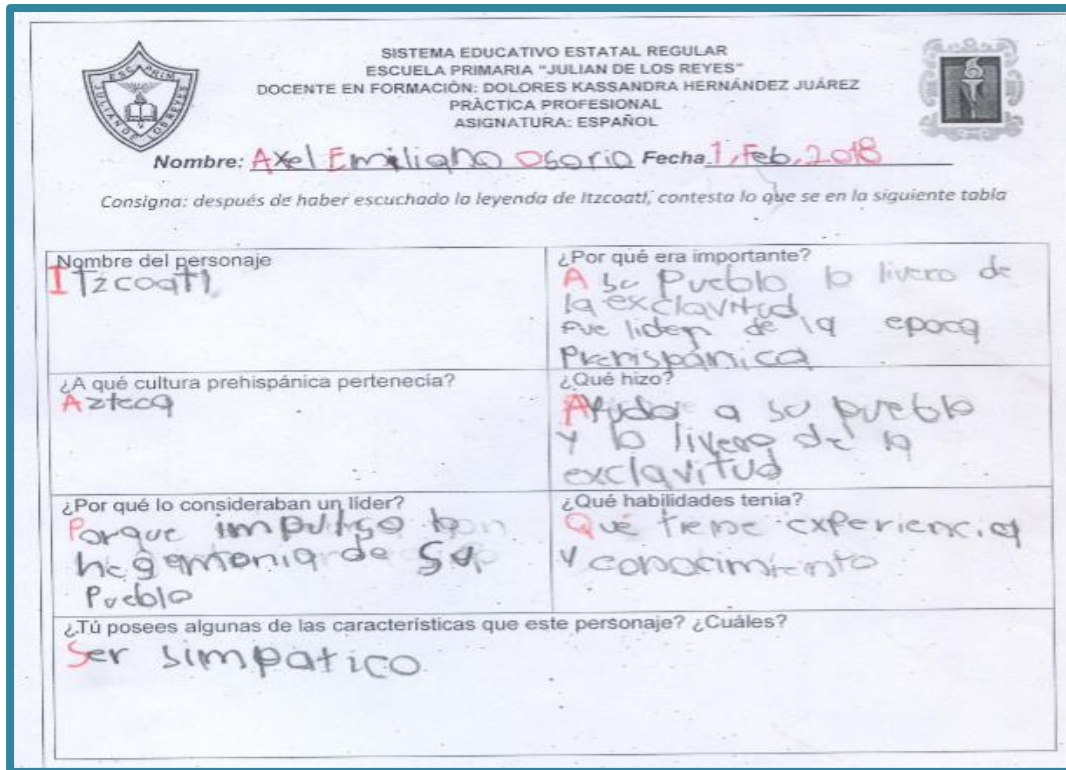 ESC. PRIM.
JULIAN DE LOS REYES
SISTEMA EDUCATIVO ESTATAL REGULAR
ESCUELA PRIMARIA "JULIAN DE LOS REYES"
DOCENTE EN FORMACIÓN: DOLORES KASSANDRA HERNÁNDEZ JUÁREZ
PRÀCTICA PROFESIONAL
ASIGNATURA: ESPAÑOL
Nombre: Axel Emiliano Osorio Fecha 1, Feb, 2018
Consigna: después de haber escuchado la leyenda de Itzcoatl, contesta lo que se en la siguiente tabla
Nombre del personaje
ITzcoatl
¿Por qué era importante?
A su Pueblo lo livero de
la exclavitud
Fue lider de la epoca
Prehispánica
¿A qué cultura prehispánica pertenecía?
Azteca
¿Qué hizo?
Ayudar a su pueblo
y lo livero de la
exclavitud
¿Por qué lo consideraban un líder?
Porque impulso
hegemonia de su
Pueblo
¿Qué habilidades tenia?
Qué tiene experiencia
y conocimiento
¿Tú posees algunas de las características que este personaje? ¿Cuáles?
Ser simpatico